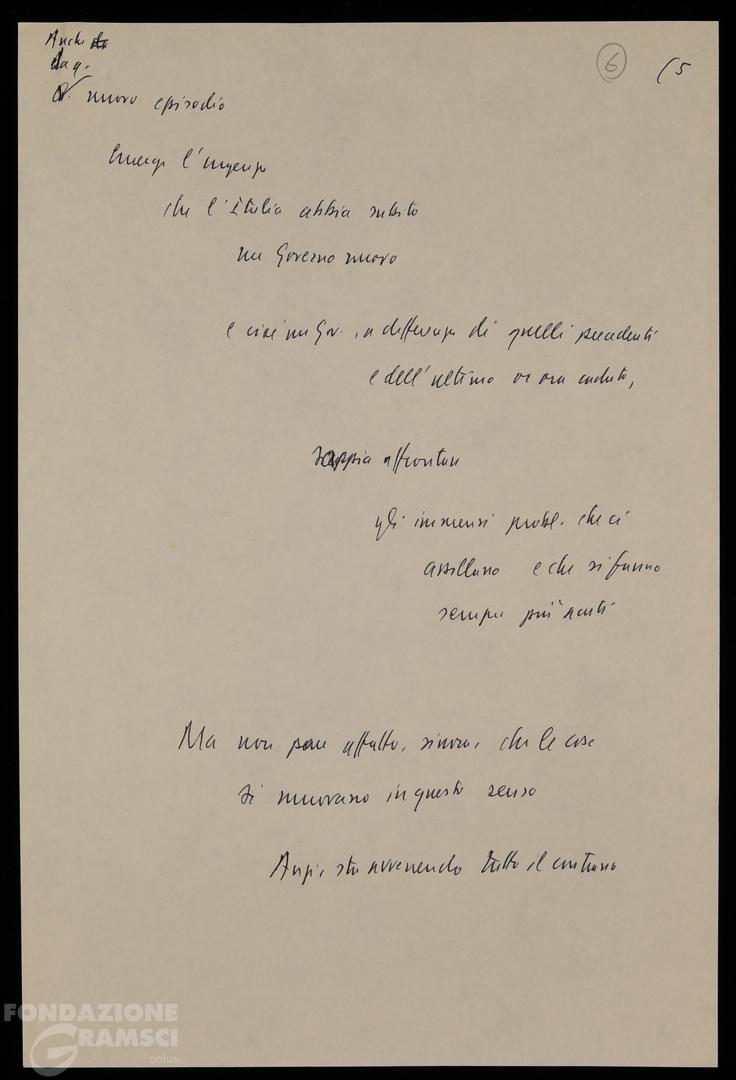 Anche da
da q.
nuovo episodio
6
(5
Emerge l'urgenza
che l'Italia abbia subito
un Governo nuovo
e cioè un Gov., a differenza di quelli precedenti
e dell'ultimo or ora caduto,
sappia affrontare
gli immensi probl. che ci
assillano e che si fanno
sempre più acuti
Ma non pare affatto, sinora, che le cose
si muovano in questo senso
Anzi, sta avvenendo tutto il contrario
FONDAZIONE
GRAMSCI
onlus